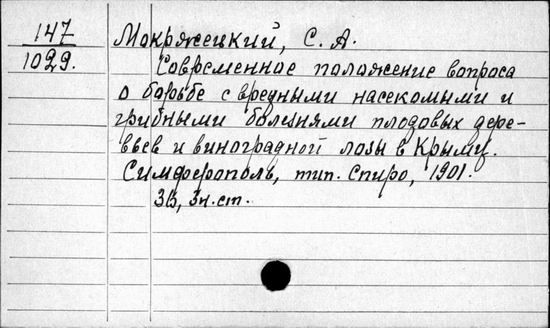 147
1029.
Мокржецкий, С. А.
Современное положение вопроса
о борьбе с вредными насекомыми и
грибными болезнями плодовых дере-
вьев и виноградной лозы в Крыму.
Симферополь, тип. Спиро, 1901.
33, 3н. ст.